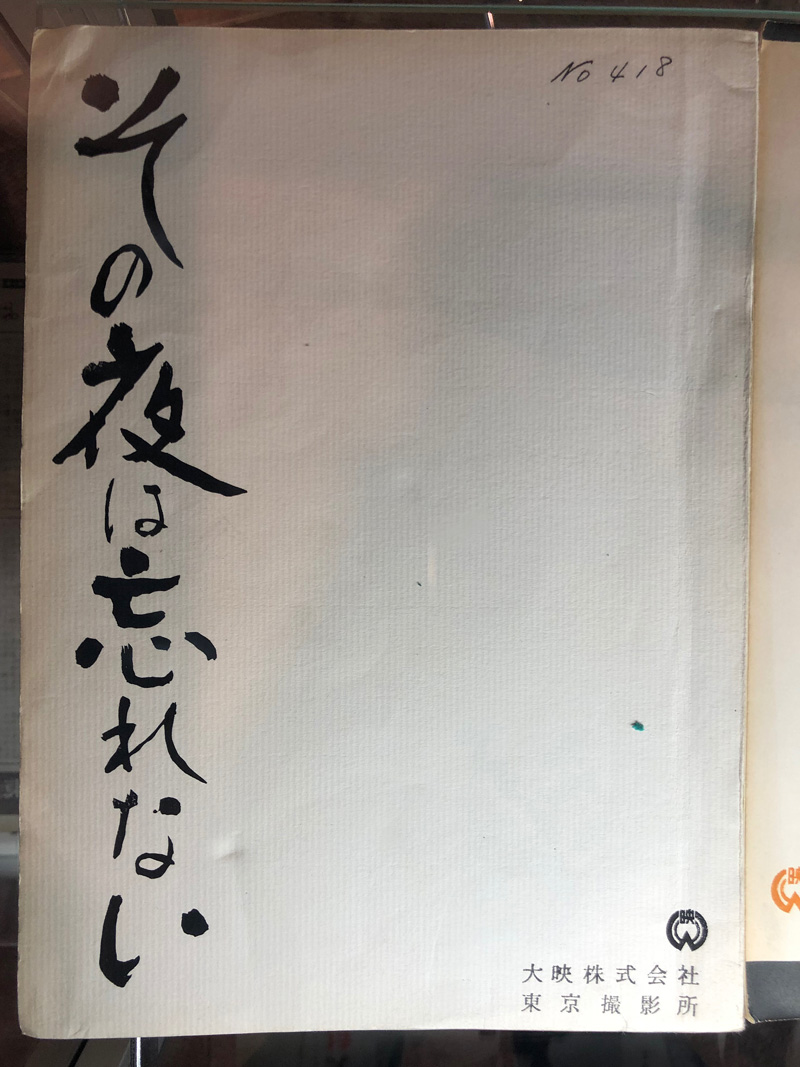 No 418
その夜は忘れない
映
大映株式会社
東京撮影所
映